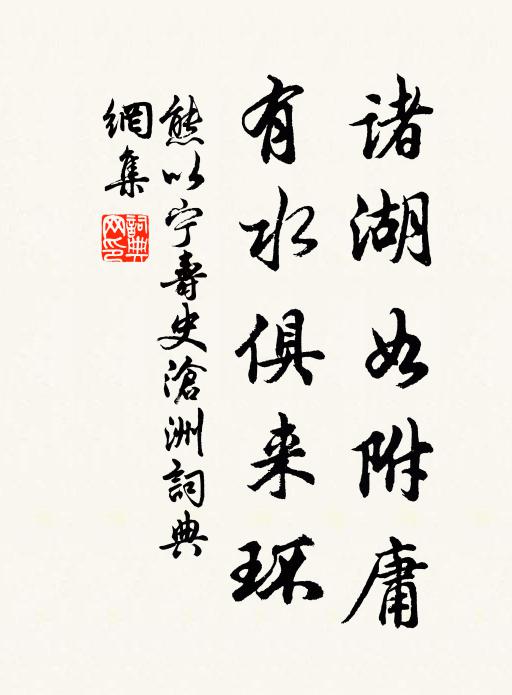 诸湖如附庸
有水俱来环
熊以宁寿史沧洲詞典
網集
詞典
网印